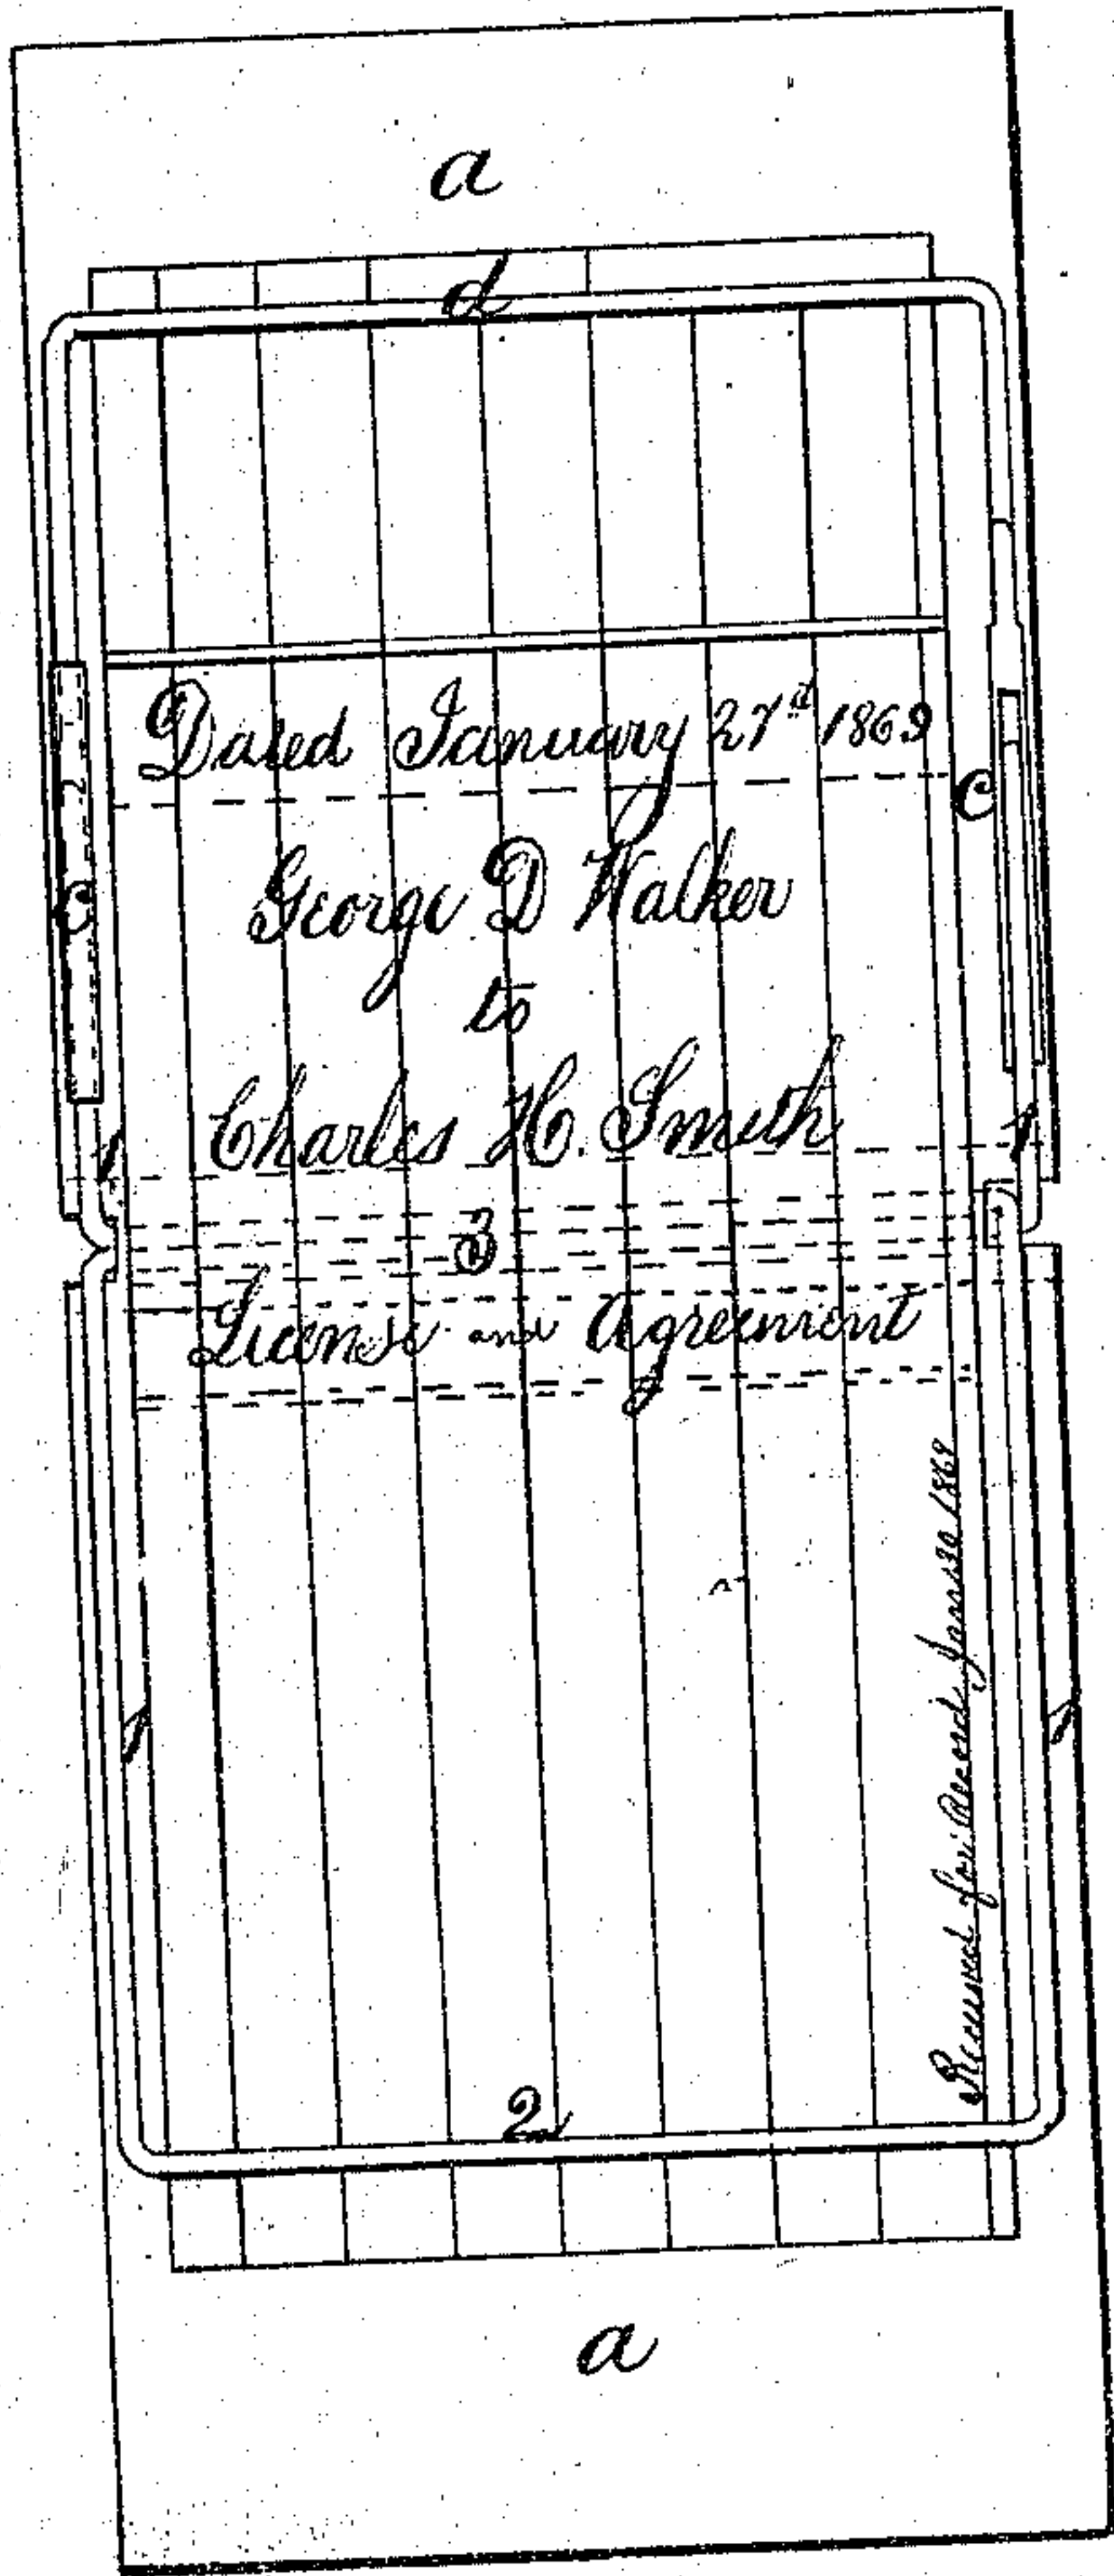 a
d
Dated January 27th 1869
C
C
George D Walker
to
Charles H. Smith
1
1
3
License and Agreement
Received for Record 1869
2
a